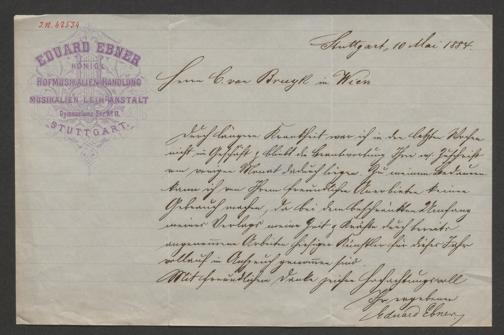 I.N. 42534
EDUARD EBNER
KÖNIGL.
HOFMUSIKALIEN-HANDLUNG
MUSIKALIEN-LEIHANSTALT
STUTTGART.
Stuttgart, 10 Mai 1884.
Herrn C. van Bruyk in Wien
Durch längere Krankheit war ich in den letzten Wochen
nicht im Geschäft & blieb die Beantwortung Ihrer Zuschrift
vom vorigen Monat dadurch liegen. Zu meinem Bedauern
kann ich von Ihrem freundlichen Anerbieten keinen
Gebrauch machen, da bei dem beschränkten Umfang
meines Verlags meine Zeit & Kräfte durch bereits
angenommene Arbeiten hiesiger Künstler für dieses Jahr
vollauf in Anspruch genommen sind.
Mit freundlichem Danke zeichne hochachtungsvoll
Ihr ergebener
Eduard Ebner